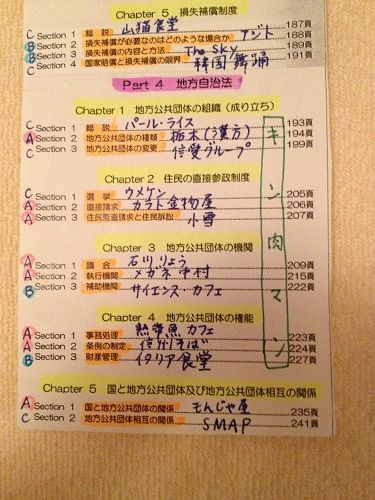 Chapter 5 損失補償制度
C Section 1 総説 山猫食堂 187頁
B Section 2 損失補償が必要なのはどのような場合か アジト 188頁
B Section 3 損失補償の内容と方法 The Sky 189頁
C Section 4 国家賠償と損失補償の限界 韓国舞踊 191頁
Part 4 地方自治法
Chapter 1 地方公共団体の組織(成り立ち)
C Section 1 総説 パール・ライス 193頁
A Section 2 地方公共団体の種類 栃木(漢方) 194頁
C Section 3 地方公共団体の変更 信愛グループ 199頁
キン肉マン
Chapter 2 住民の直接参政制度
C Section 1 選挙 ウメケン 205頁
A Section 2 直接請求 カフト金物屋 206頁
A Section 3 住民監査請求と住民訴訟 小雪 207頁
Chapter 3 地方公共団体の機関
A Section 1 議会 石川りょう 209頁
A Section 2 執行機関 メガネ中村 215頁
B Section 3 補助機関 サイエンス・カフェ 222頁
Chapter 4 地方公共団体の権能
A Section 1 事務処理 熱帯魚カフェ 223頁
A Section 2 条例の制定 信州そば 224頁
B Section 3 財産管理 イタリア食堂 227頁
Chapter 5 国と地方公共団体及び地方公共団体相互の関係
A Section 1 国と地方公共団体の関係 もんじゃ屋 235頁
C Section 2 地方公共団体相互の関係 SMAP 241頁